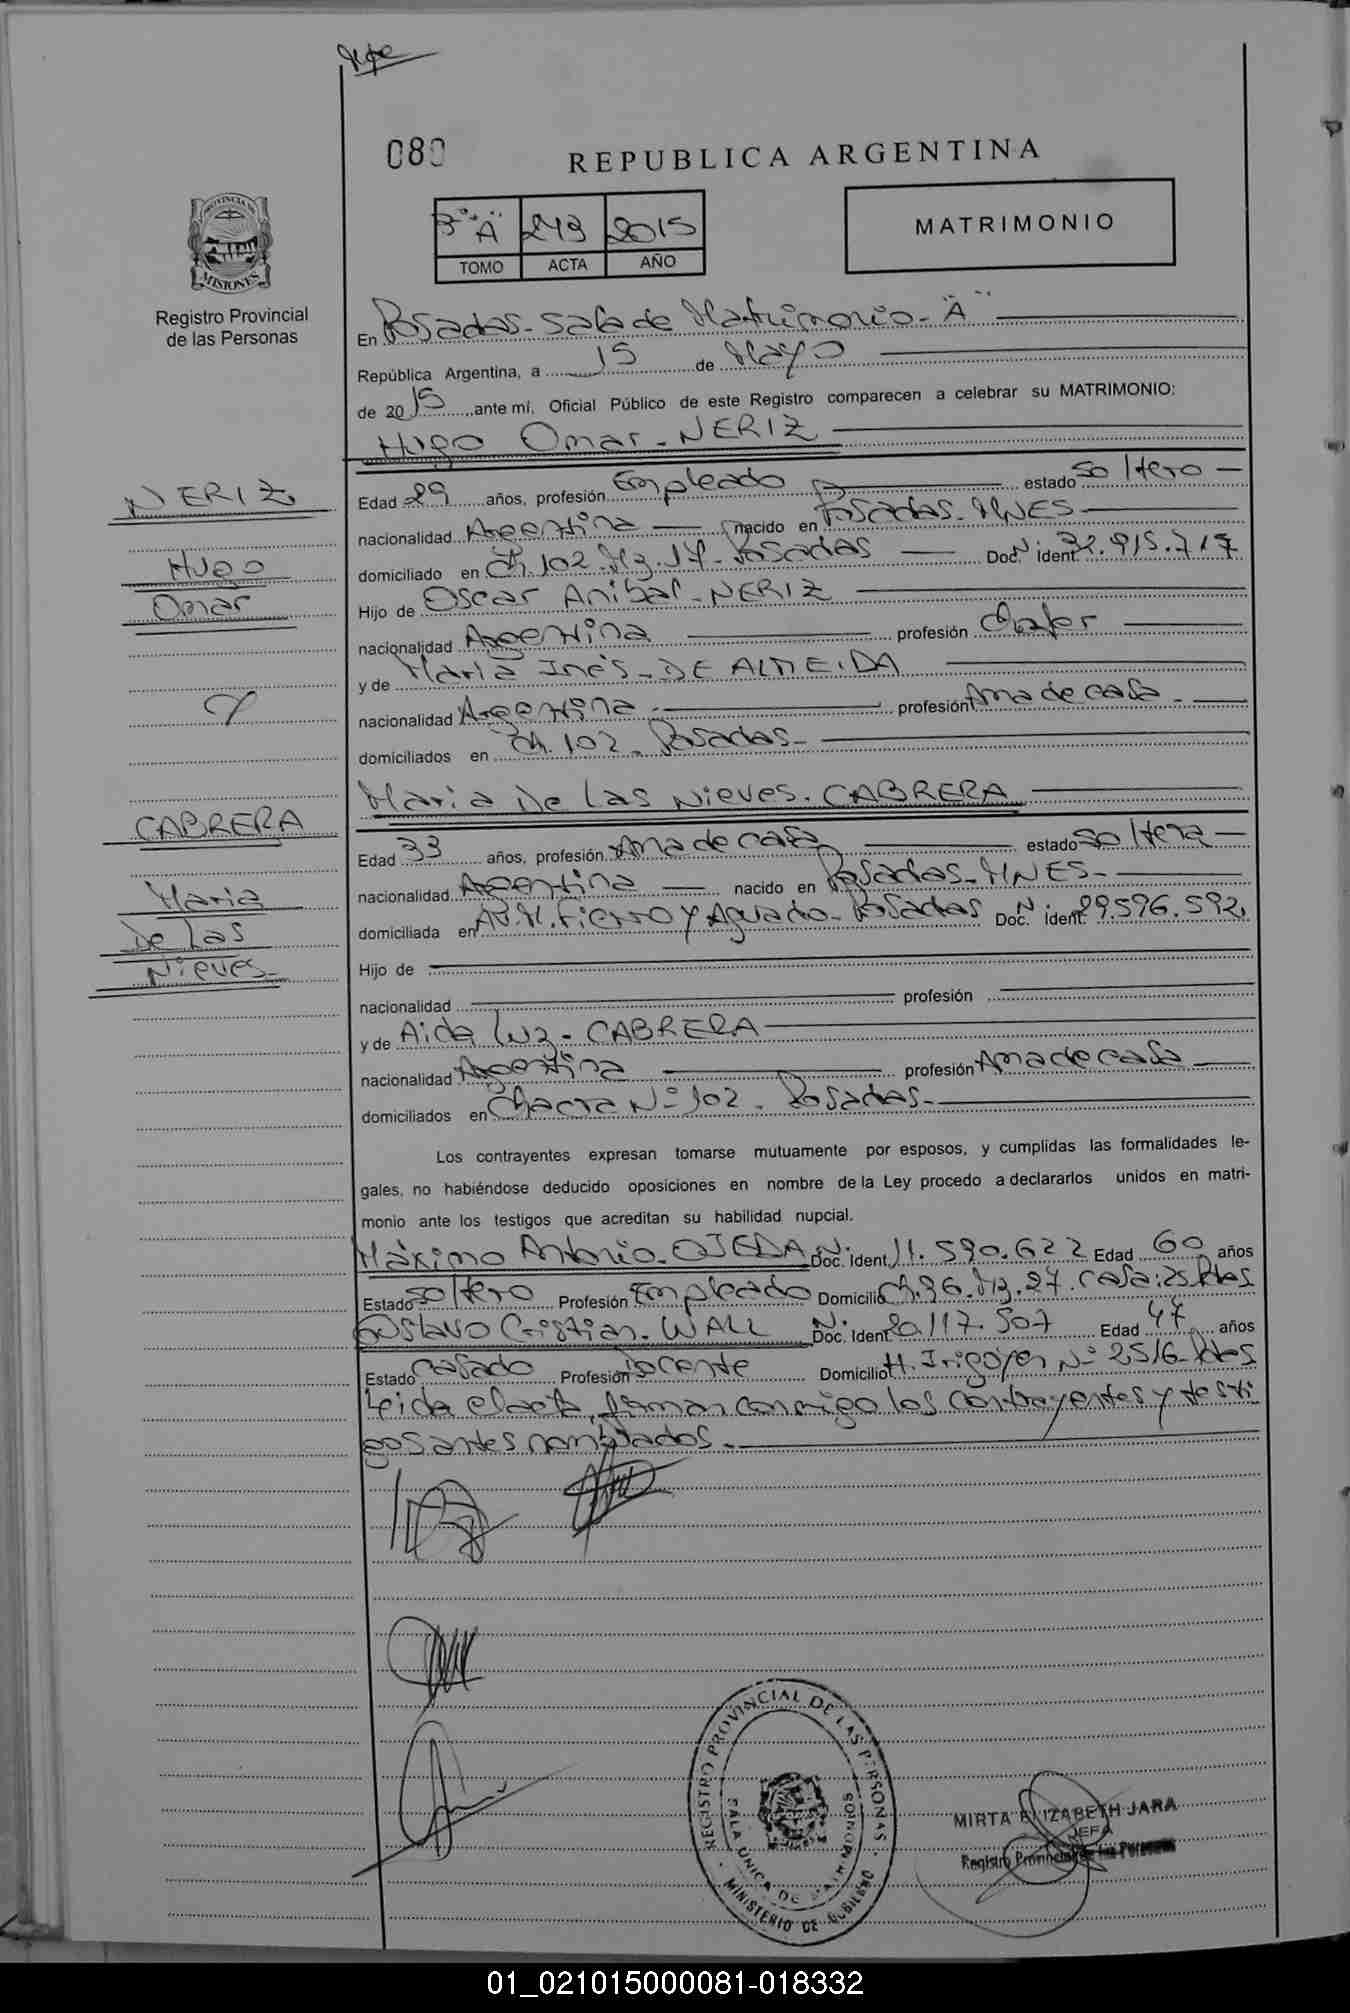 080
REPUBLICA ARGENTINA
3° "A" 249 2015
TOMO ACTA AÑO
MATRIMONIO
PROVINCIA DE MISIONES
Registro Provincial
de las Personas
En Posadas - Sala de Matrimonio - "A"
República Argentina, a 15 de Mayo
de 2015, ante mí, Oficial Público de este Registro comparecen a celebrar su MATRIMONIO:
Hugo Omar - NERIZ
NERIZ
Hugo
Omar
y
CABRERA
Maria
De Las
Nieves -
Edad 29 años, profesión Empleado estado soltero
nacionalidad Argentina nacido en Posadas - MNES
domiciliado en Ch. 102. Mz. 17. Posadas Doc. N. Ident. 32.915.717
Hijo de Oscar Anibal - NERIZ
nacionalidad Argentina profesión Chofer
y de Maria Inés - DE ALMEIDA
nacionalidad Argentina profesión Ama de casa -
domiciliados en Ch. 102 - Posadas -
Maria De Las Nieves. CABRERA
Edad 33 años, profesión Ama de casa estado soltera
nacionalidad Argentina nacido en Posadas - MNES -
domiciliada en Av. M. Fierro y Aguado - Posadas Doc. N. Ident. 29.596.592
Hijo de
nacionalidad profesión
y de Aida Luz - CABRERA
nacionalidad Argentina profesión Ama de casa
domiciliados en Chacra N° 102 - Posadas -
Los contrayentes expresan tomarse mutuamente por esposos, y cumplidas las formalidades le-
gales, no habiéndose deducido oposiciones en nombre de la Ley procedo a declararlos unidos en matri-
monio ante los testigos que acreditan su habilidad nupcial.
Máximo Antonio - OJEDA Doc. N. Ident. 11.590.622 Edad 60 años
Estado soltero Profesión Empleado Domicilio Ch. 96. Mz. 27. casa: 25 Pdas
Gustavo Cristian - WALL Doc. N. Ident. 20.117.507 Edad 47 años
Estado casado Profesión Docente Domicilio H. Irigoyen N° 2516 - Pdas
Leida el acta, firman conmigo los contrayentes y testi
gos antes nombrados. -
REGISTRO PROVINCIAL DE LAS PERSONAS
SALA UNICA DE MATRIMONIOS
MINISTERIO DE GOBIERNO
MIRTA ELIZABETH JARA
JEFA
Registro Provincial de las Personas
01_021015000081-018332